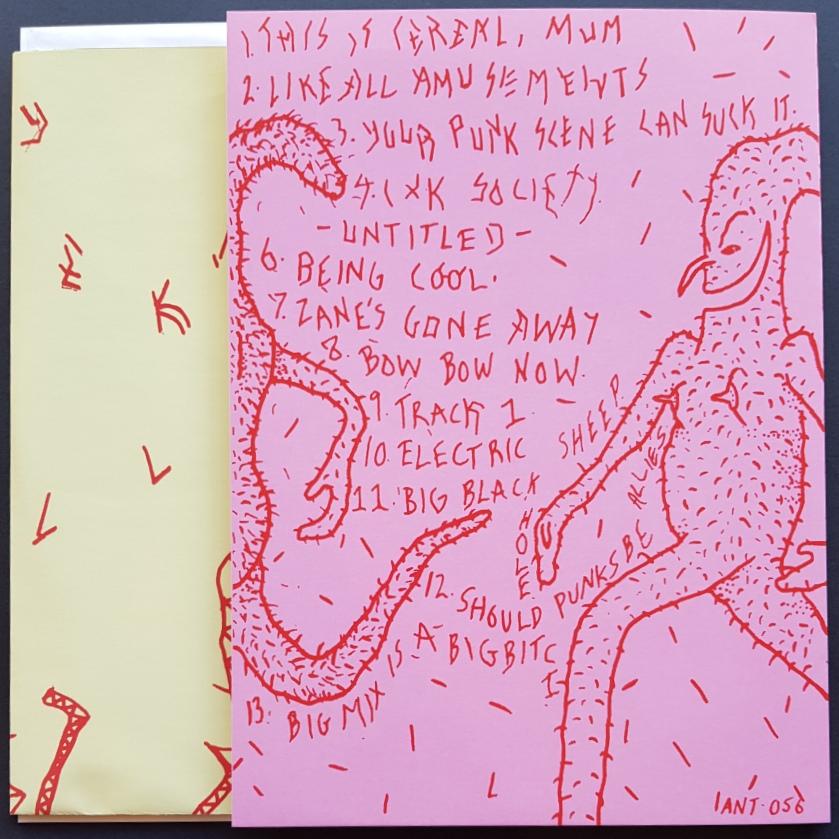 1. THIS IS CEREAL, MUM
2. LIKE ALL AMUSEMENTS
3. YOUR PUNK SCENE CAN SUCK IT.
SOCIETY.
-UNTITLED-
6. BEING COOL.
7. ZANE'S GONE AWAY
8. BOW BOW NOW.
9. TRACK 1.
10. ELECTRIC SHEEP
11. BIG BLACK HOLE
12. SHOULD PUNKS BE ALLIES
13. BIG MIX IS A BIG BITCH
IANT-056